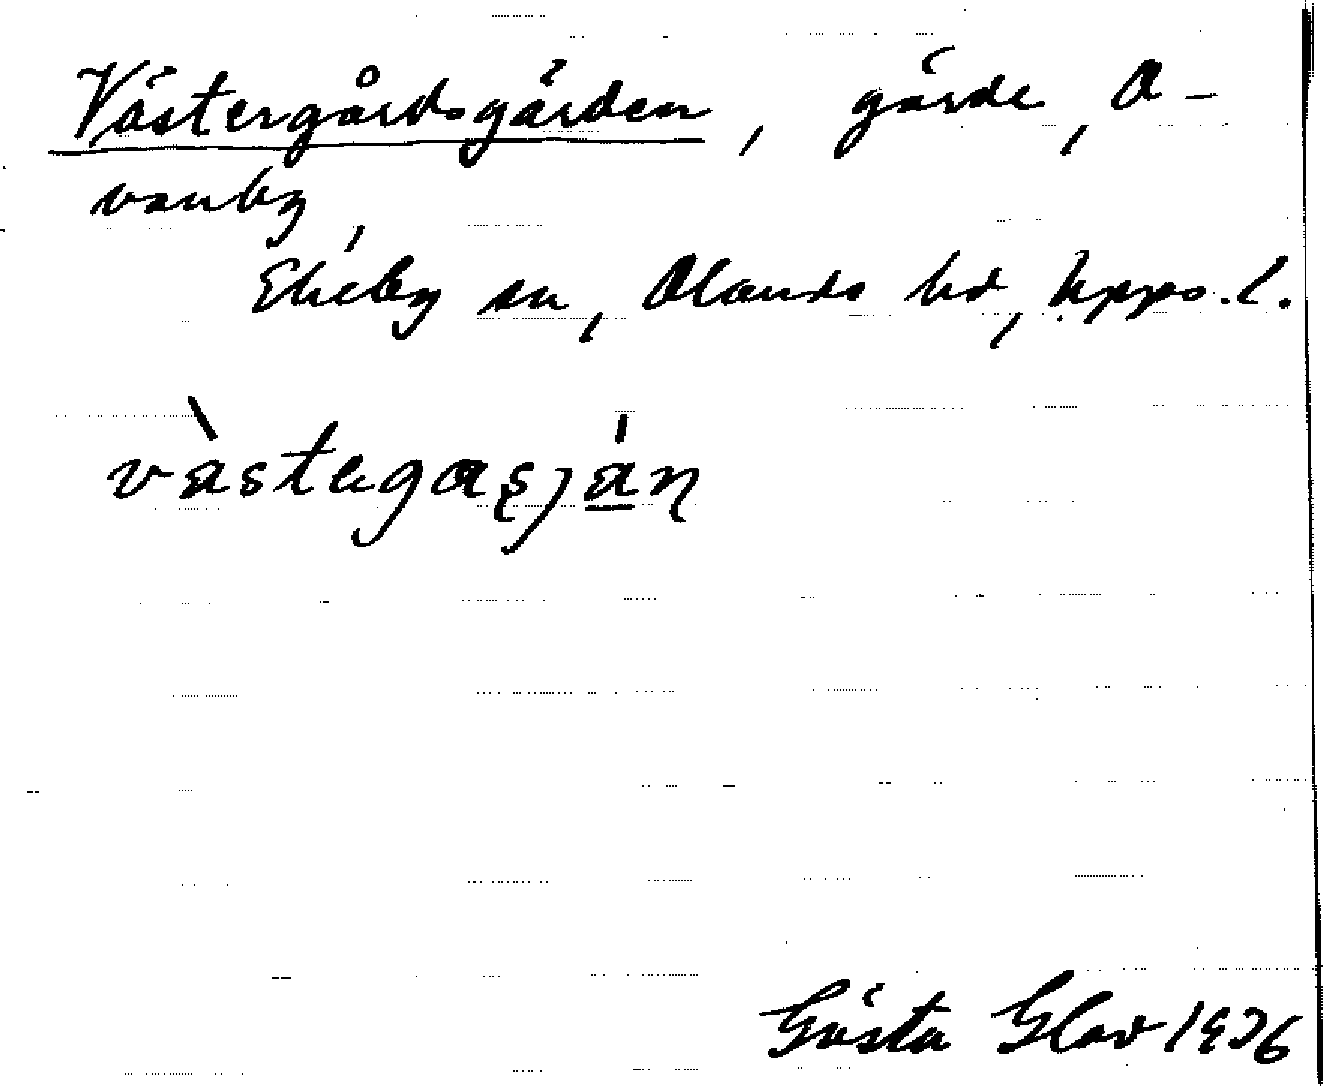 Västergårdsgärden, gärde, O-
vanby,
Ekeby sn, Olands hd, Upps. l.
västegasjän
Gösta Glav 1936